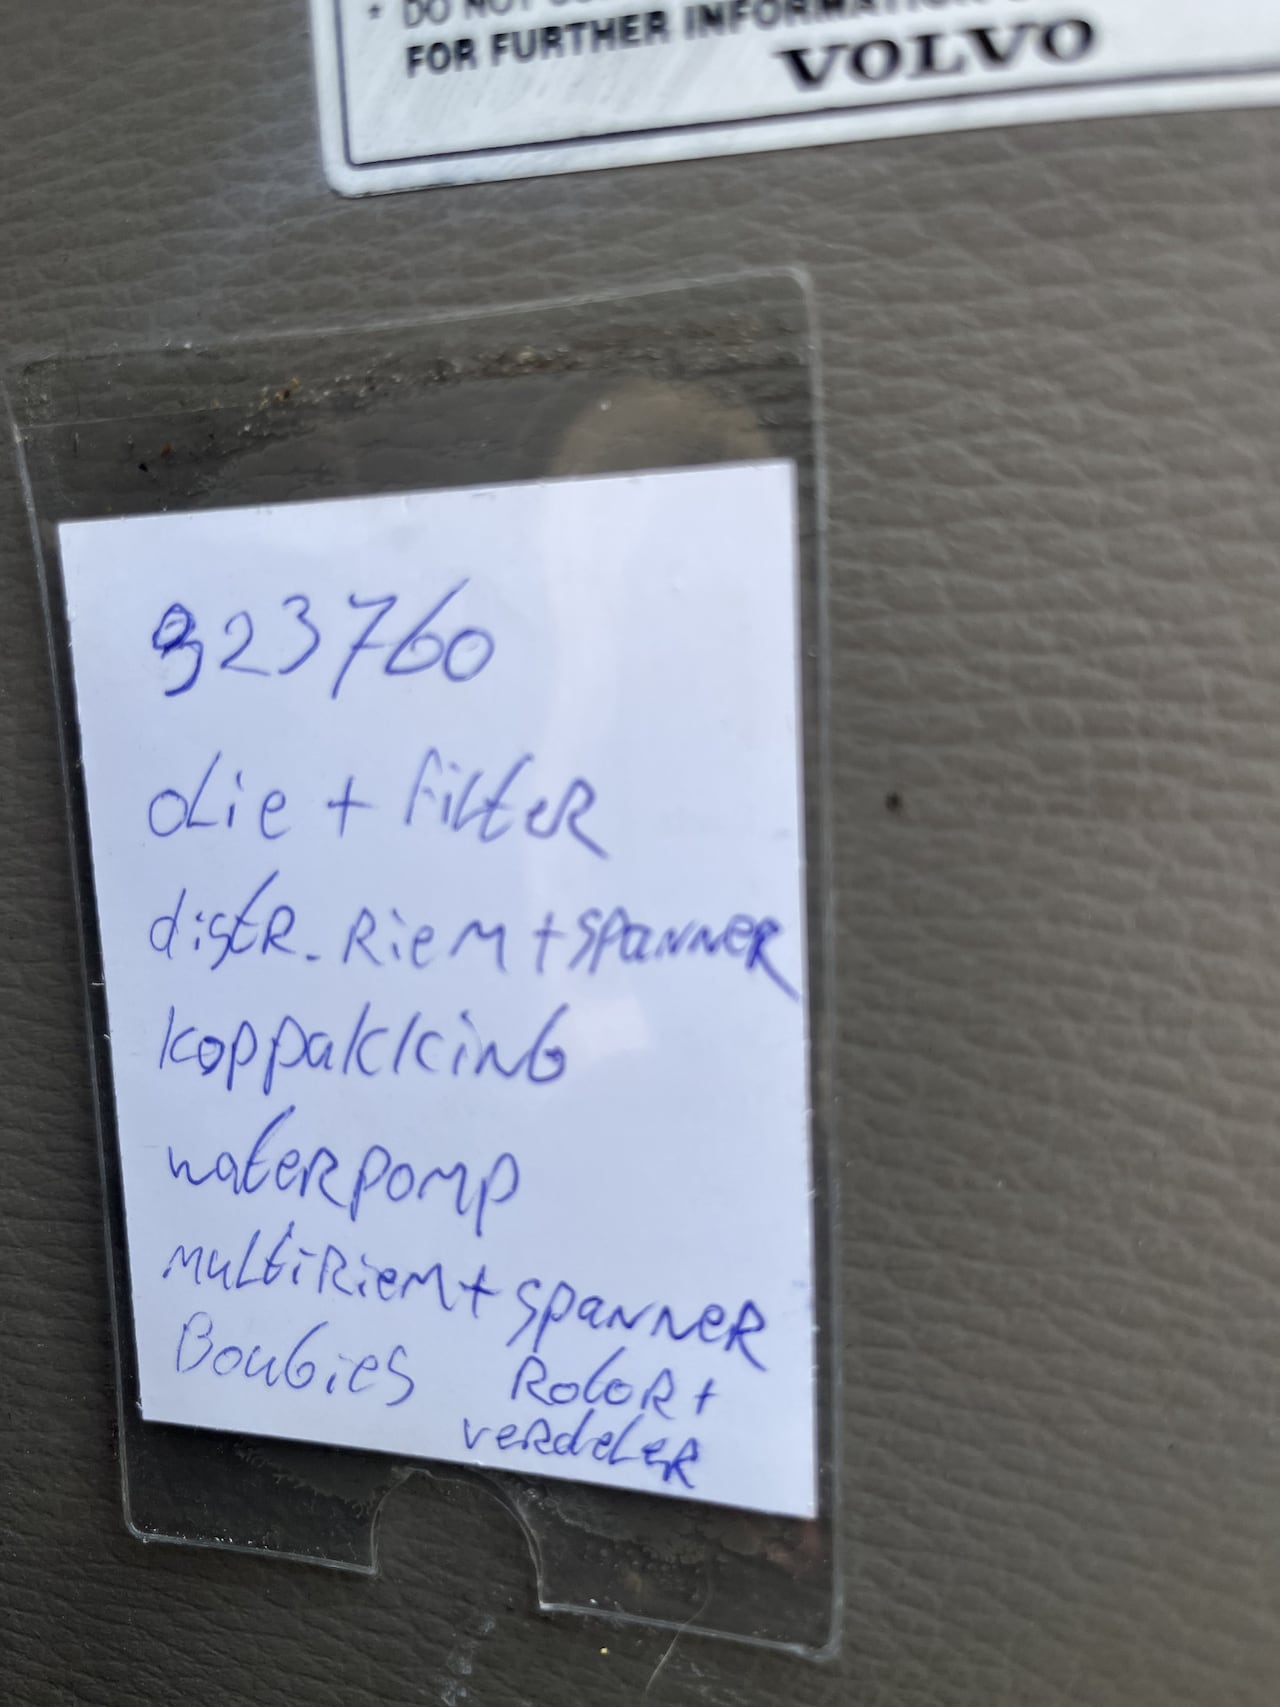 * DO NOT
FOR FURTHER INFORMATION
VOLVO
323760
olie + filter
distR. Riem + spanner
koppakking
waterpomp
multiRiem + spanner
Boubies Rotor +
verdeler